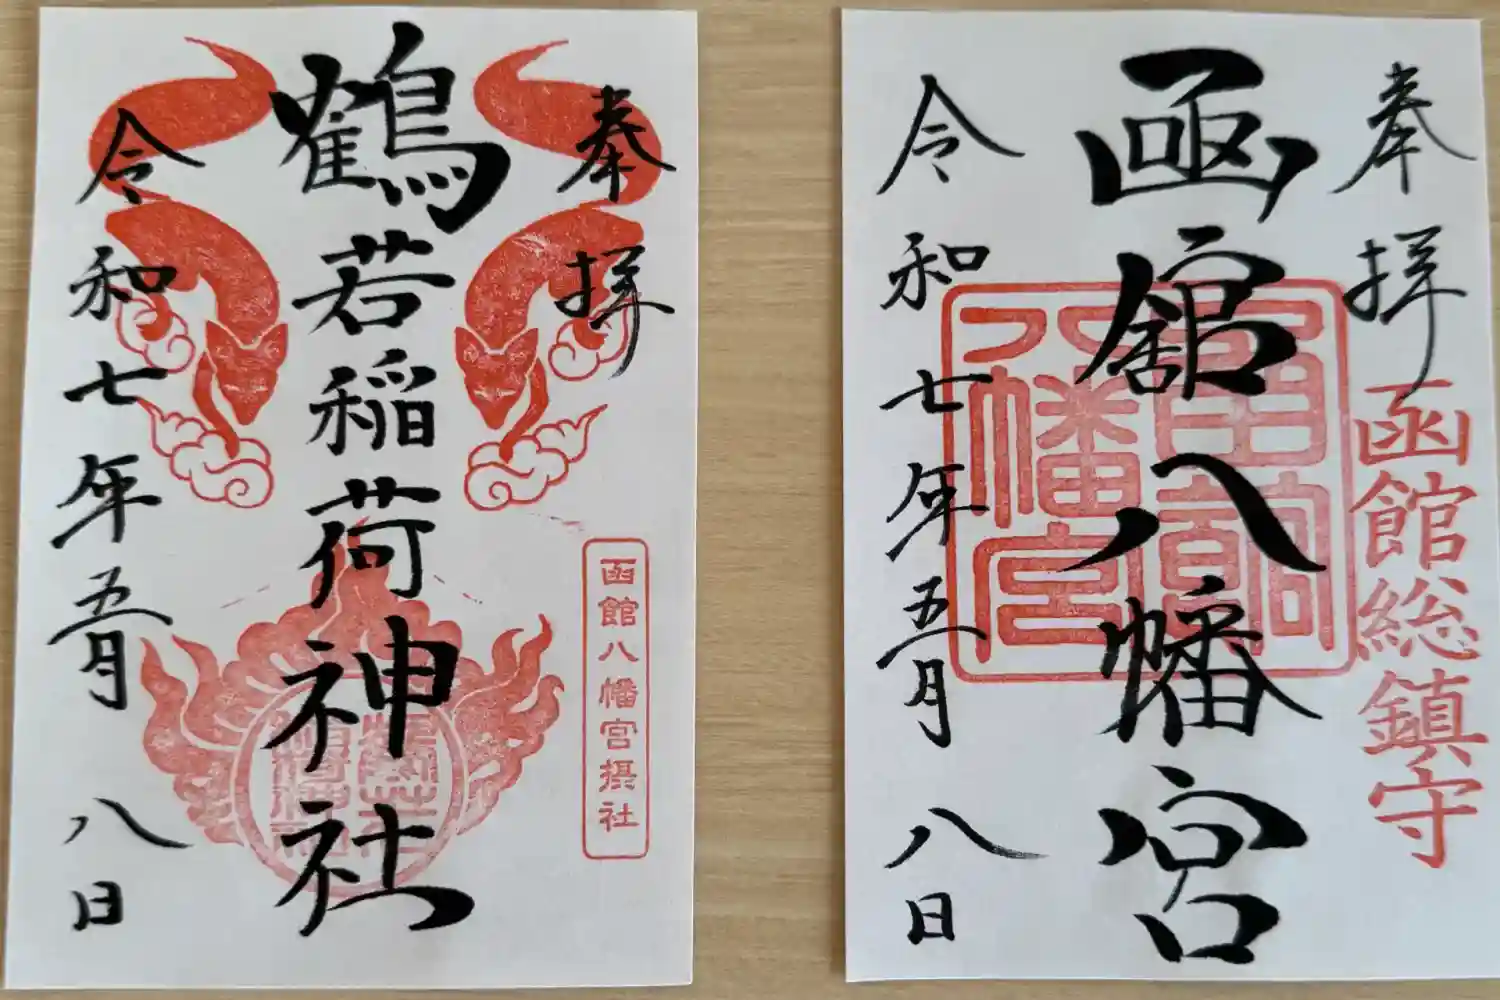 奉拝
鶴若稲荷神社
令和七年五月八日
函館八幡宮摂社
奉拝
函館八幡宮
令和七年五月八日
函館総鎮守
函館
八幡宮